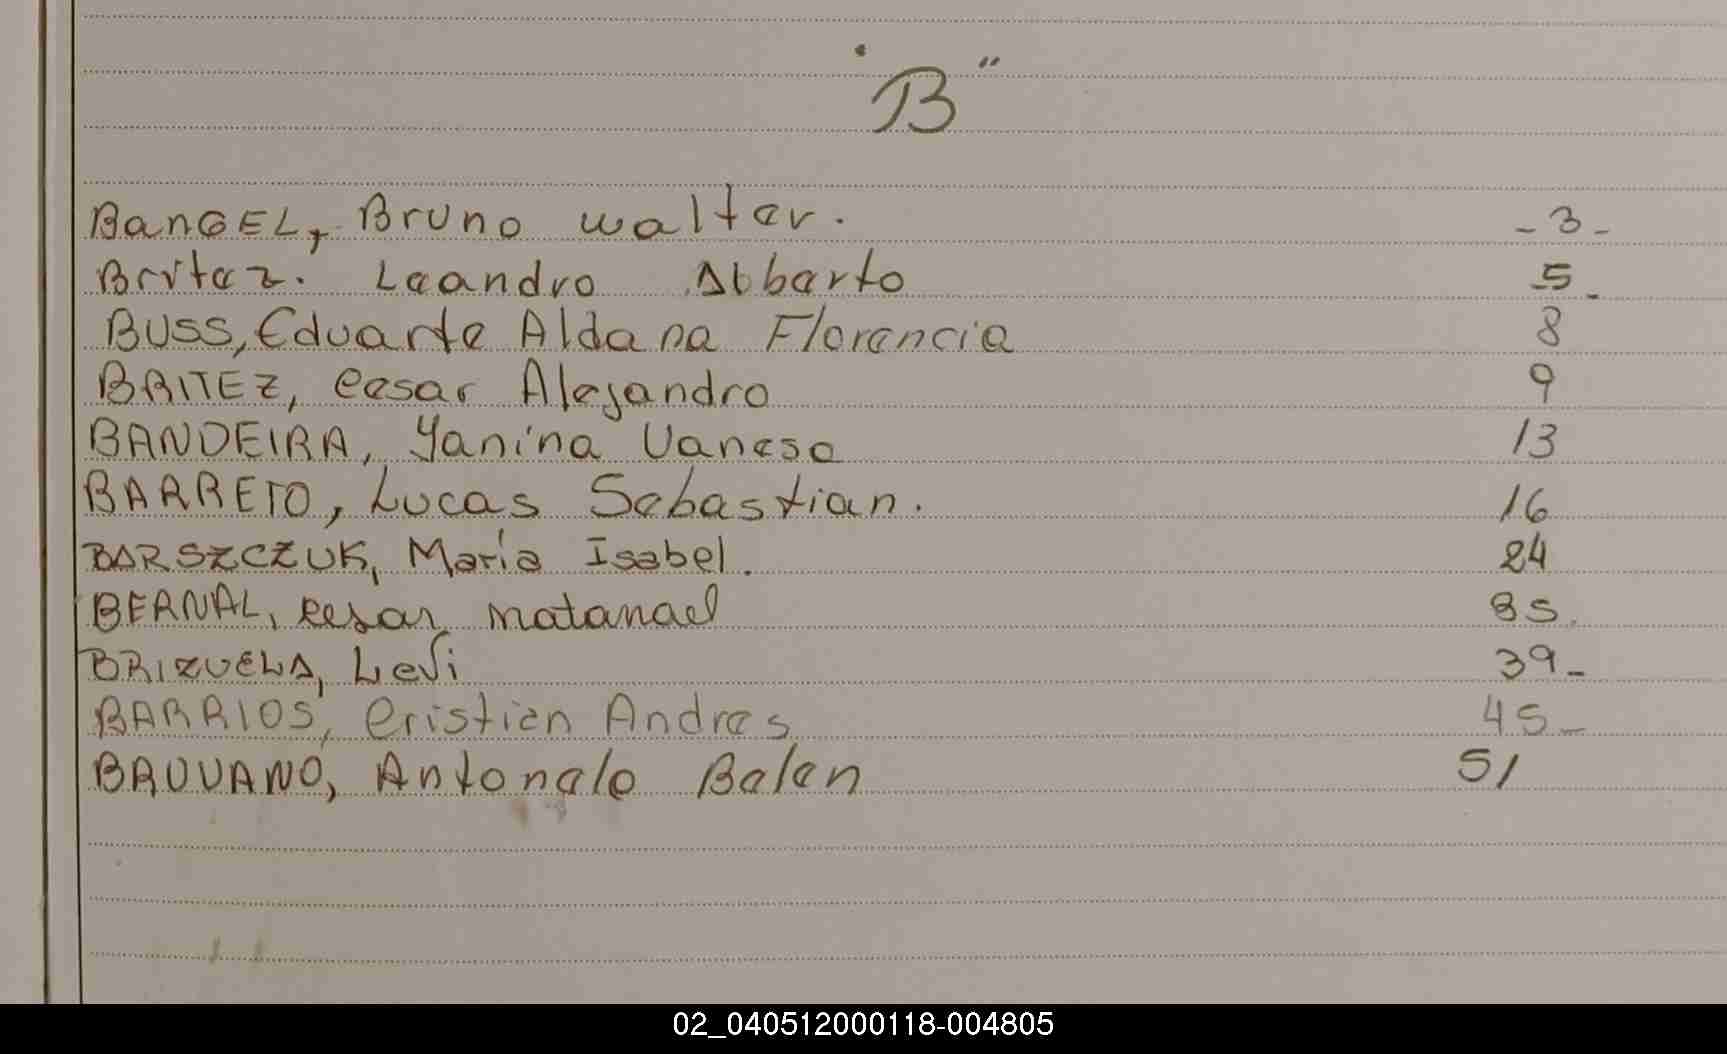 "B"
BanGEL, Bruno Walter. -3-
Britez. Leandro Alberto 5-
BUSS, Eduarte Aldana Florencia 8
BRITEZ, Cesar Alejandro 9
BANDEIRA, Yanina Vanesa 13
BARRETO, Lucas Sebastian. 16
BARSZCZUK, María Isabel. 24
BERNAL, Cesar Matanael 35.
BRIZUELA, Levi 39-
BARRIOS, Cristian Andres 45-
Belen 51
02_040512000118-004805